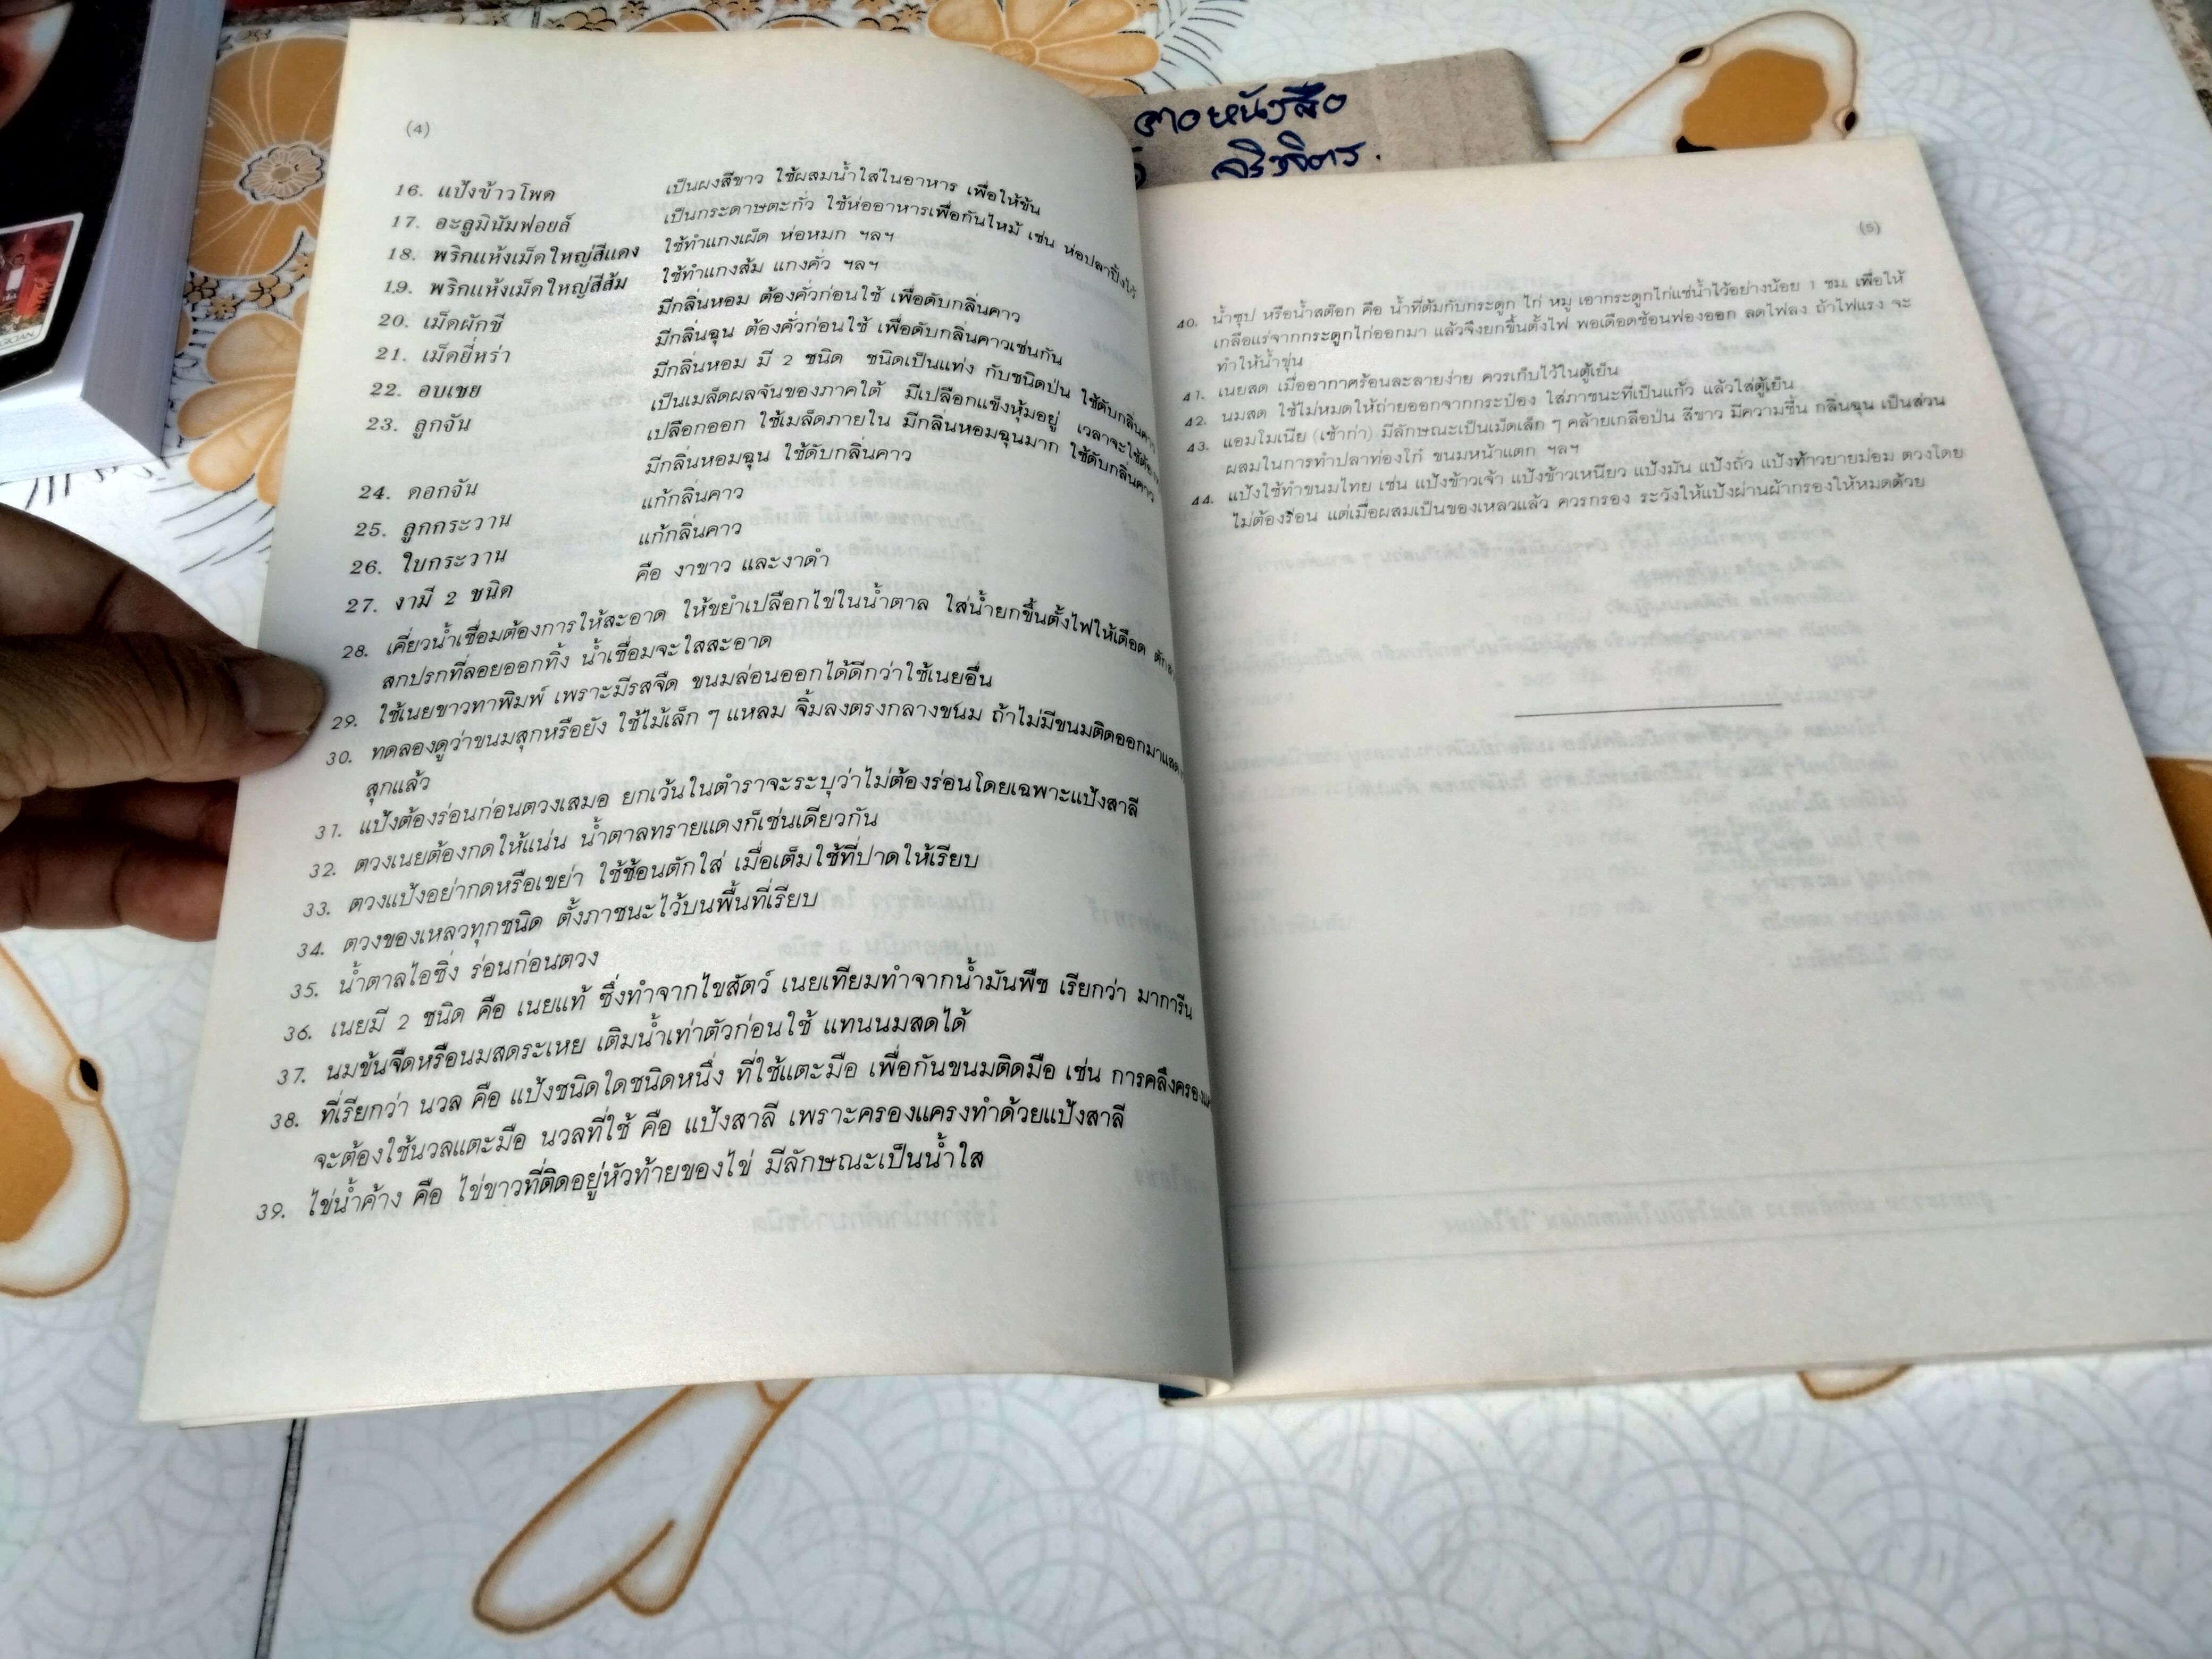 (4)
16. แป้งข้าวโพด เป็นผงสีขาว ใช้ผสมน้ำใส่ในอาหาร เพื่อให้ข้น
17. อะลูมินัมฟอยล์ เป็นกระดาษตะกั่ว ใช้ห่ออาหารเพื่อกันไหม้ เช่น ห่อปลาปิ้งไว้
18. พริกแห้งเม็ดใหญ่สีแดง ใช้ทำแกงเผ็ด ห่อหมก ฯลฯ
19. พริกแห้งเม็ดใหญ่สีส้ม ใช้ทำแกงส้ม แกงคั่ว ฯลฯ
20. เม็ดผักชี มีกลิ่นหอม ต้องคั่วก่อนใช้ เพื่อดับกลิ่นคาว
21. เม็ดยี่หร่า มีกลิ่นฉุน ต้องคั่วก่อนใช้ เพื่อดับกลิ่นคาวเช่นกัน
22. อบเชย มีกลิ่นหอม มี 2 ชนิด ชนิดเป็นแท่ง กับชนิดป่น ใช้ดับกลิ่นคาว
23. ลูกจัน เป็นเมล็ดผลจันของภาคใต้ มีเปลือกแข็งหุ้มอยู่ เวลาจะใช้ต้อง
เปลือกออก ใช้เมล็ดภายใน มีกลิ่นหอมฉุนมาก ใช้ดับกลิ่นคาว
24. ดอกจัน มีกลิ่นหอมฉุน ใช้ดับกลิ่นคาว
25. ลูกกระวาน แก้กลิ่นคาว
26. ใบกระวาน แก้กลิ่นคาว
27. งามี 2 ชนิด คือ งาขาว และงาดำ
28. เคี่ยวน้ำเชื่อมต้องการให้สะอาด ให้ขยำเปลือกไข่ในน้ำตาล ใส่น้ำยกขึ้นตั้งไฟให้เดือด
สกปรกที่ลอยออกทิ้ง น้ำเชื่อมจะใสสะอาด
29. ใช้เนยขาวทาพิมพ์ เพราะมีรสจืด ขนมล่อนออกได้ดีกว่าใช้เนยอื่น
30. ทดลองดูว่าขนมสุกหรือยัง ใช้ไม้เล็ก ๆ แหลม จิ้มลงตรงกลางขนม ถ้าไม่มีขนมติดออกมาแสดง
สุกแล้ว
31. แป้งต้องร่อนก่อนตวงเสมอ ยกเว้นในตำราจะระบุว่าไม่ต้องร่อนโดยเฉพาะแป้งสาลี
32. ตวงเนยต้องกดให้แน่น น้ำตาลทรายแดงก็เช่นเดียวกัน
33. ตวงแป้งอย่ากดหรือเขย่า ใช้ช้อนตักใส่ เมื่อเต็มใช้ที่ปาดให้เรียบ
34. ตวงของเหลวทุกชนิด ตั้งภาชนะไว้บนพื้นที่เรียบ
35. น้ำตาลไอซิ่ง ร่อนก่อนตวง
36. เนยมี 2 ชนิด คือ เนยแท้ ซึ่งทำจากไขสัตว์ เนยเทียมทำจากน้ำมันพืช เรียกว่า มาการีน
37. นมข้นจืดหรือนมสดระเหย เติมน้ำเท่าตัวก่อนใช้ แทนนมสดได้
38. ที่เรียกว่า นวล คือ แป้งชนิดใดชนิดหนึ่ง ที่ใช้แตะมือ เพื่อกันขนมติดมือ เช่น การคลึงครอง
จะต้องใช้นวลแตะมือ นวลที่ใช้ คือ แป้งสาลี เพราะครองแครงทำด้วยแป้งสาลี
39. ไข่น้ำค้าง คือ ไข่ขาวที่ติดอยู่หัวท้ายของไข่ มีลักษณะเป็นน้ำใส
(5)
40. น้ำซุป หรือน้ำสต๊อก คือ น้ำที่ต้มกับกระดูก ไก่ หมู เอากระดูกไก่แช่น้ำไว้อย่างน้อย 1 ชม. เพื่อให้
เกลือแร่จากกระดูกไก่ออกมา แล้วจึงยกขึ้นตั้งไฟ พอเดือดช้อนฟองออก ลดไฟลง ถ้าไฟแรง จะ
ทำให้น้ำขุ่น
41. เนยสด เมื่ออากาศร้อนละลายง่าย ควรเก็บไว้ในตู้เย็น
42. นมสด ใช้ไม่หมดให้ถ่ายออกจากกระป๋อง ใส่ภาชนะที่เป็นแก้ว แล้วใส่ตู้เย็น
43. แอมโมเนีย (เช้าก่า) มีลักษณะเป็นเม็ดเล็ก ๆ คล้ายเกลือป่น สีขาว มีความชื้น กลิ่นฉุน เป็นส่วน
ผสมในการทำปลาท่องโก๋ ขนมหน้าแตก ฯลฯ
44. แป้งใช้ทำขนมไทย เช่น แป้งข้าวเจ้า แป้งข้าวเหนียว แป้งมัน แป้งถั่ว แป้งท้าวยายม่อม ตวงโดย
ไม่ต้องร่อน แต่เมื่อผสมเป็นของเหลวแล้ว ควรกรอง ระวังให้แป้งผ่านผ้ากรองให้หมดด้วย